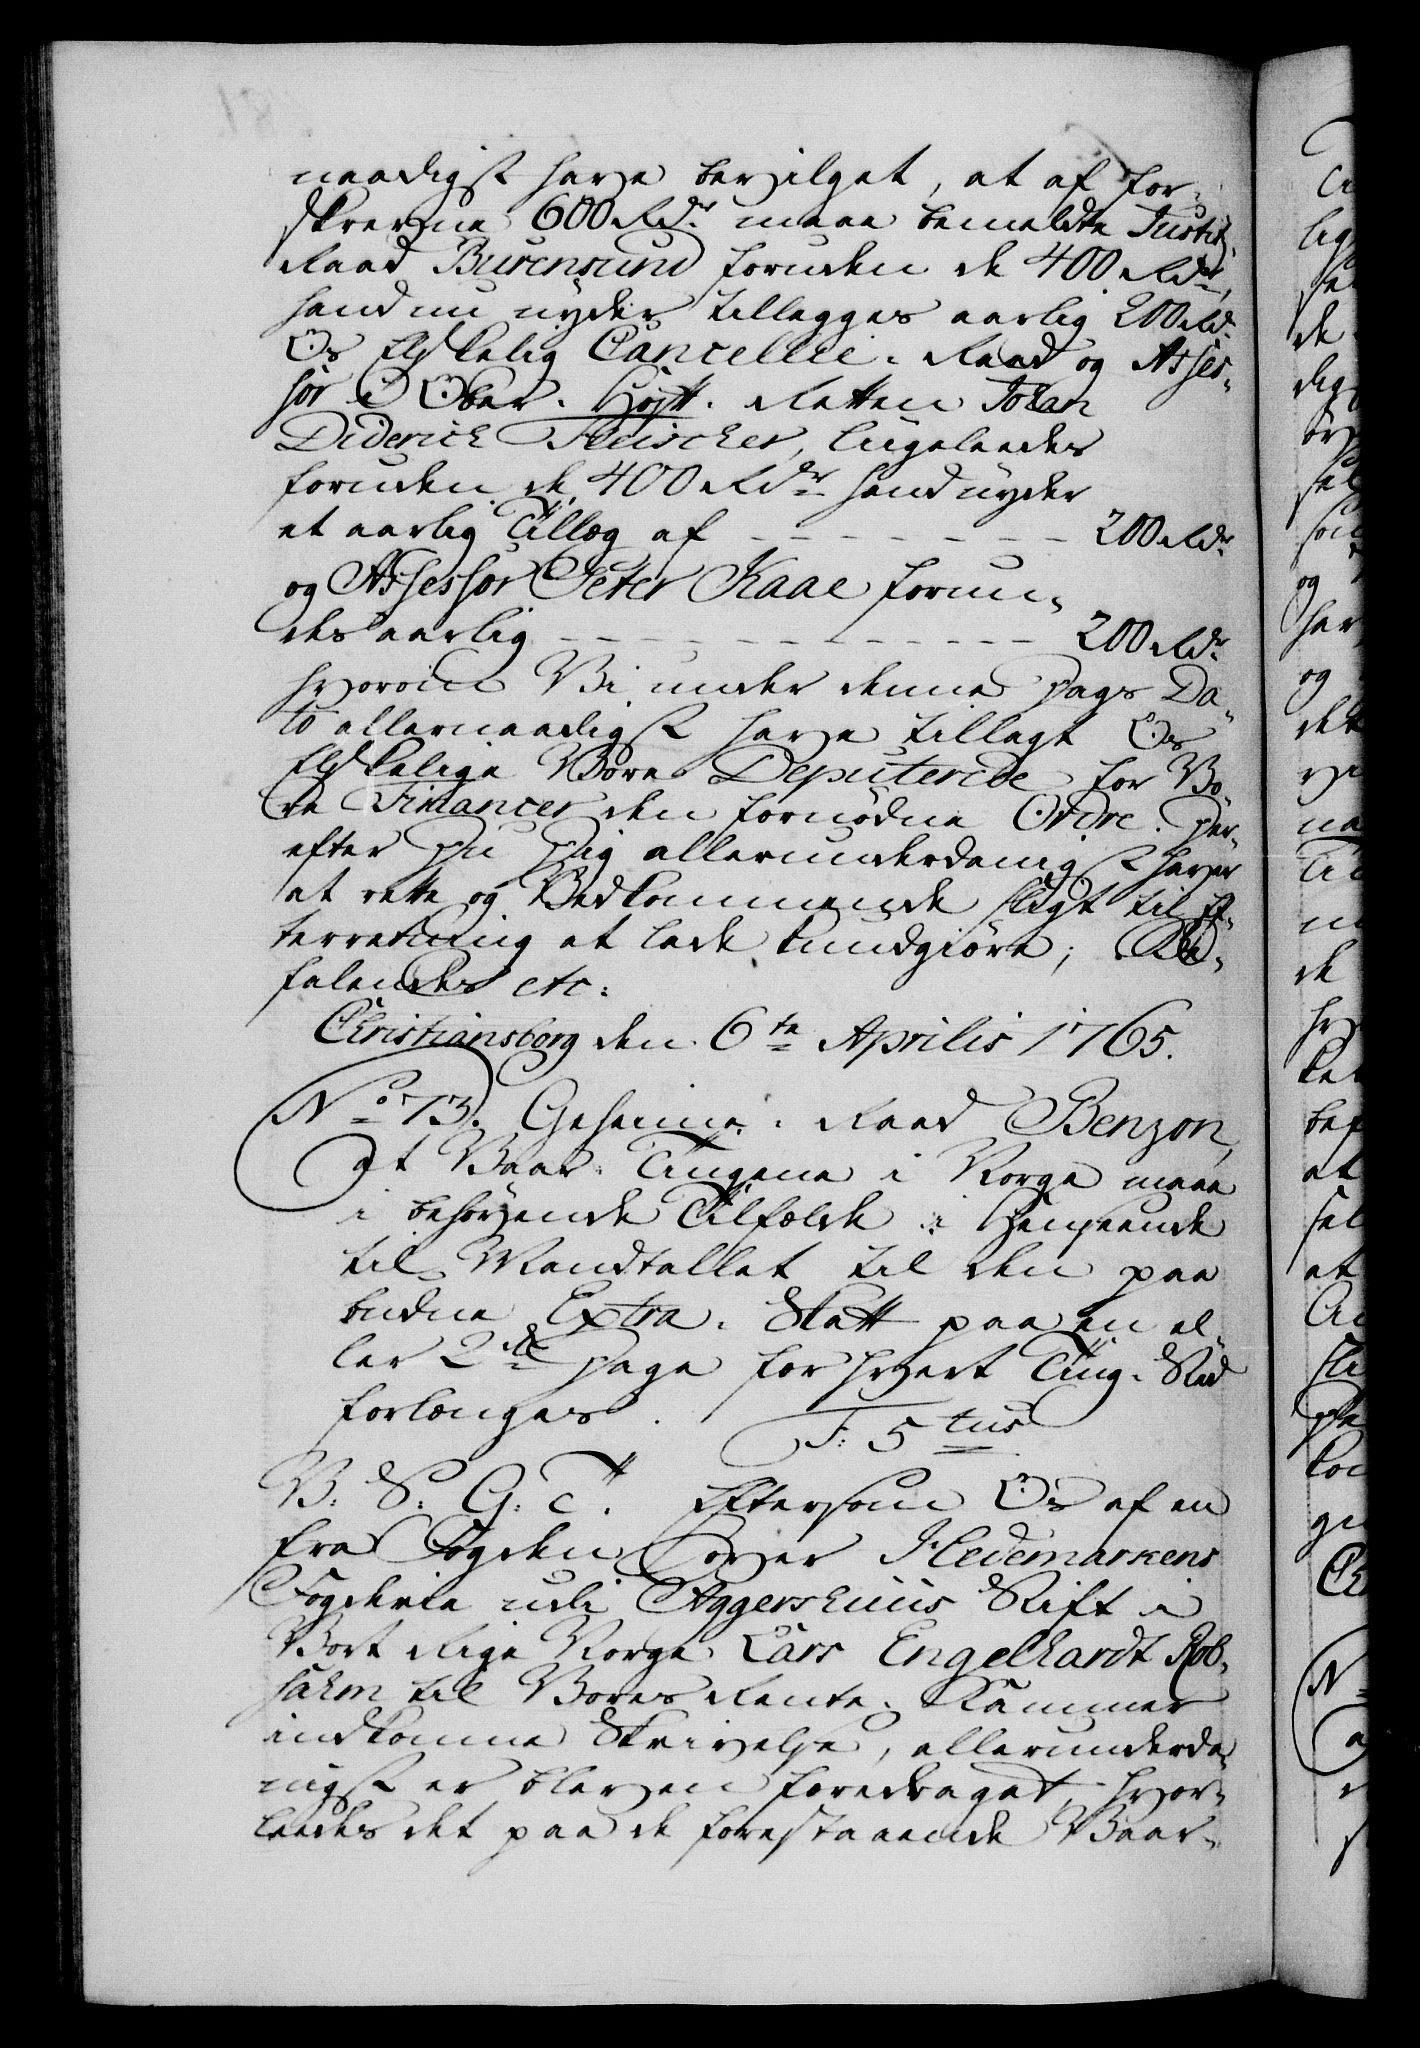 naadigst have bevilget, at af for¬
skrevne 600 Rdr. maae bemeldte Justitz
Raad Burensund foruden de 400 Rdr.,
hand nu nyder tillegges aarlig 200 Rdr.
Os Elskelig Cancellie-Raad og Asses¬
sor i Ober-Hof-Retten Johan
Diderich Fleischer, ligeleedes
foruden de 400 Rdr. hand nyder
et aarlig Tillæg af - - - - - - - - 200 Rdr.
og Assessor Peter Kaae forun¬
des aarlig - - - - - - - - - - - - - 200 Rdr.
hvorom Vi under denne Dags Da¬
to allernaadigst have tillagt Os
Elskelige Vore Deputerede for Vo¬
re Financer den fornødne Ordre. Der¬
efter Du Dig allerunderdanigst haver
at rette og Vedkommende sligt til Ef¬
terretning at lade kundgiøre; Be¬
falendes etc:
Christiansborg den 6te Aprilis 1765.
No 73. Geheime-Raad Benzon,
At Vaar-Tingene i Norge maae
i behøvende Tilfælde i Henseende
til Mandtallet til den paa
budne Extra-Skatt paa en el¬
ler 2de Dage for hvert Ting-Sted
forlænges.
F: 5tus
V: S: G: T. Eftersom Os af en
fra Fogden over Hedemarkens
Fogderie udi Aggershuus Stift i
Vort Rige Norge Lars Engelhardt Rob¬
sahm til Vores Rente-Kammer
indkomne Skrivelse, allerunderda¬
nigst er bleven foredraget, hvor¬
leedes det paa de forestaaende Vaar¬